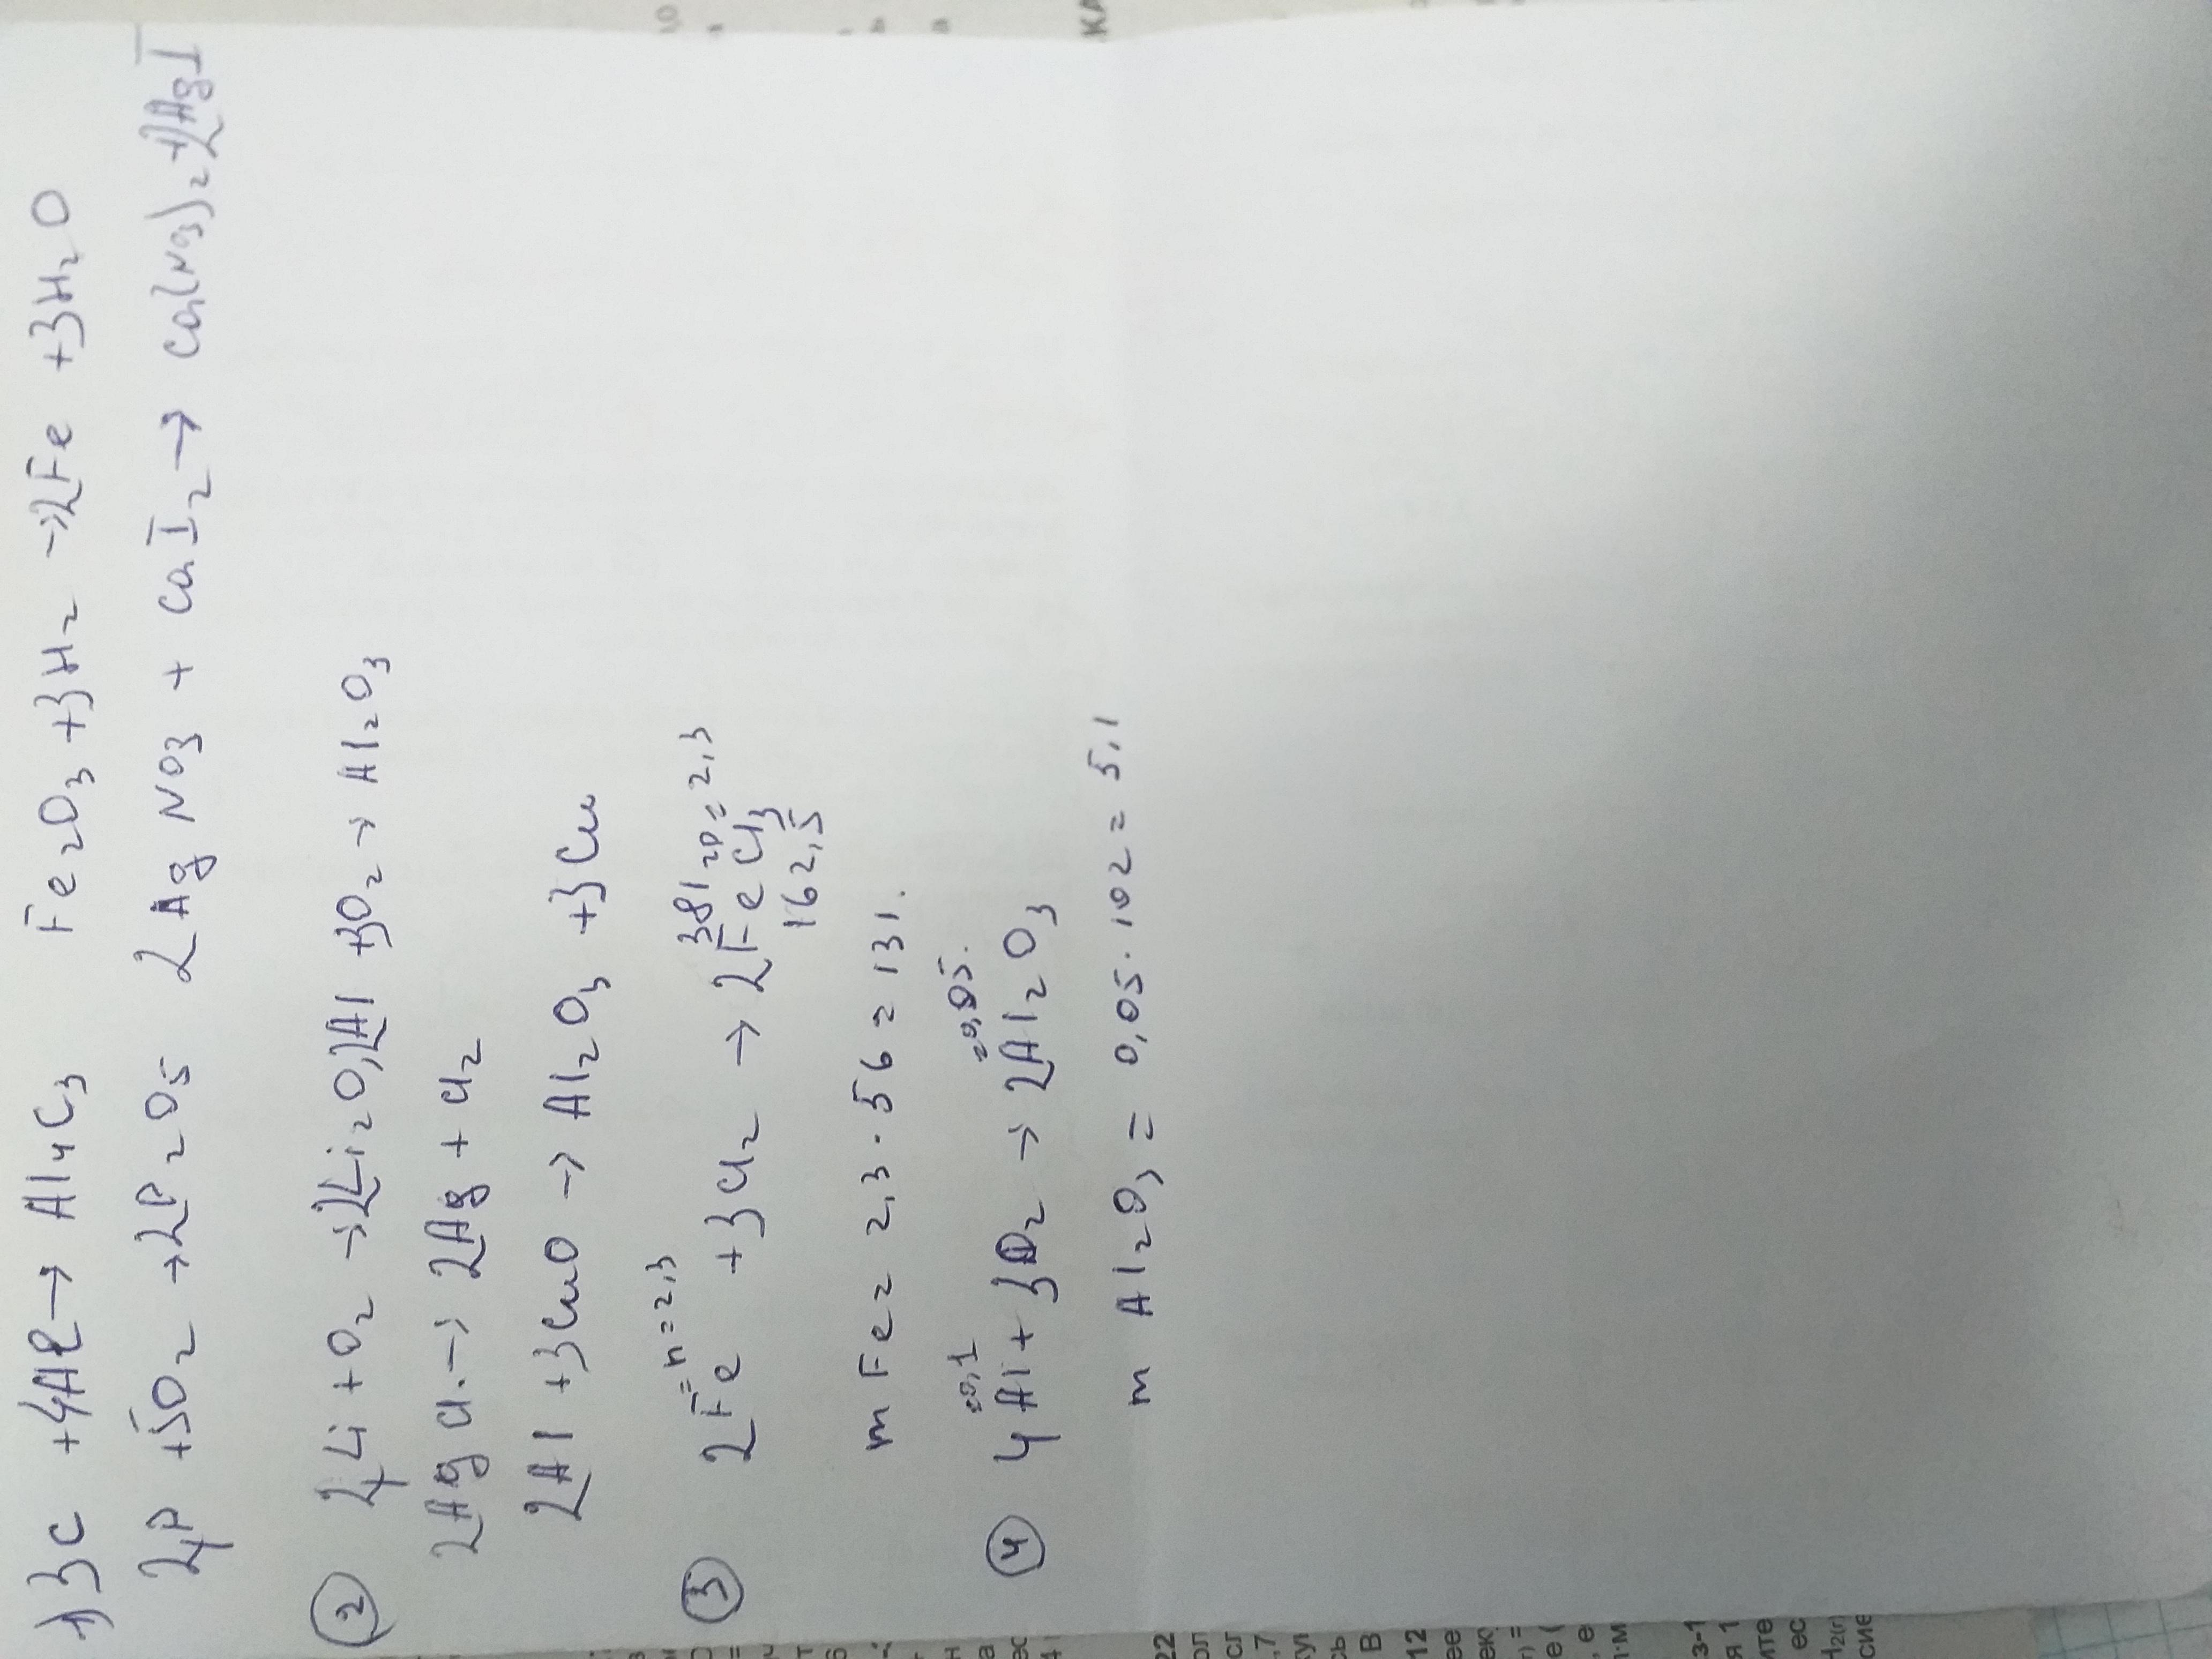 1) 3C + 4Al → Al4C3 Fe2O3 + 3H2 → 2Fe + 3H2O
4P + 5O2 → 2P2O5 2AgNO3 + CaI2 → Ca(NO3)2 + 2AgI
2 4Li + O2 → 2Li2O, 2Al + 3O2 → Al2O3
2AgCl → 2Ag + Cl2
2Al + 3CuO → Al2O3 + 3Cu
= n = 2,3 381 гр = 2,3
3 2Fe + 3Cl2 → 2FeCl3
162,5
m Fe = 2,3 · 56 = 131.
=0,1 =0,05.
4 4Al + 3O2 → 2Al2O3
m Al2O3 = 0,05 · 102 = 5,1